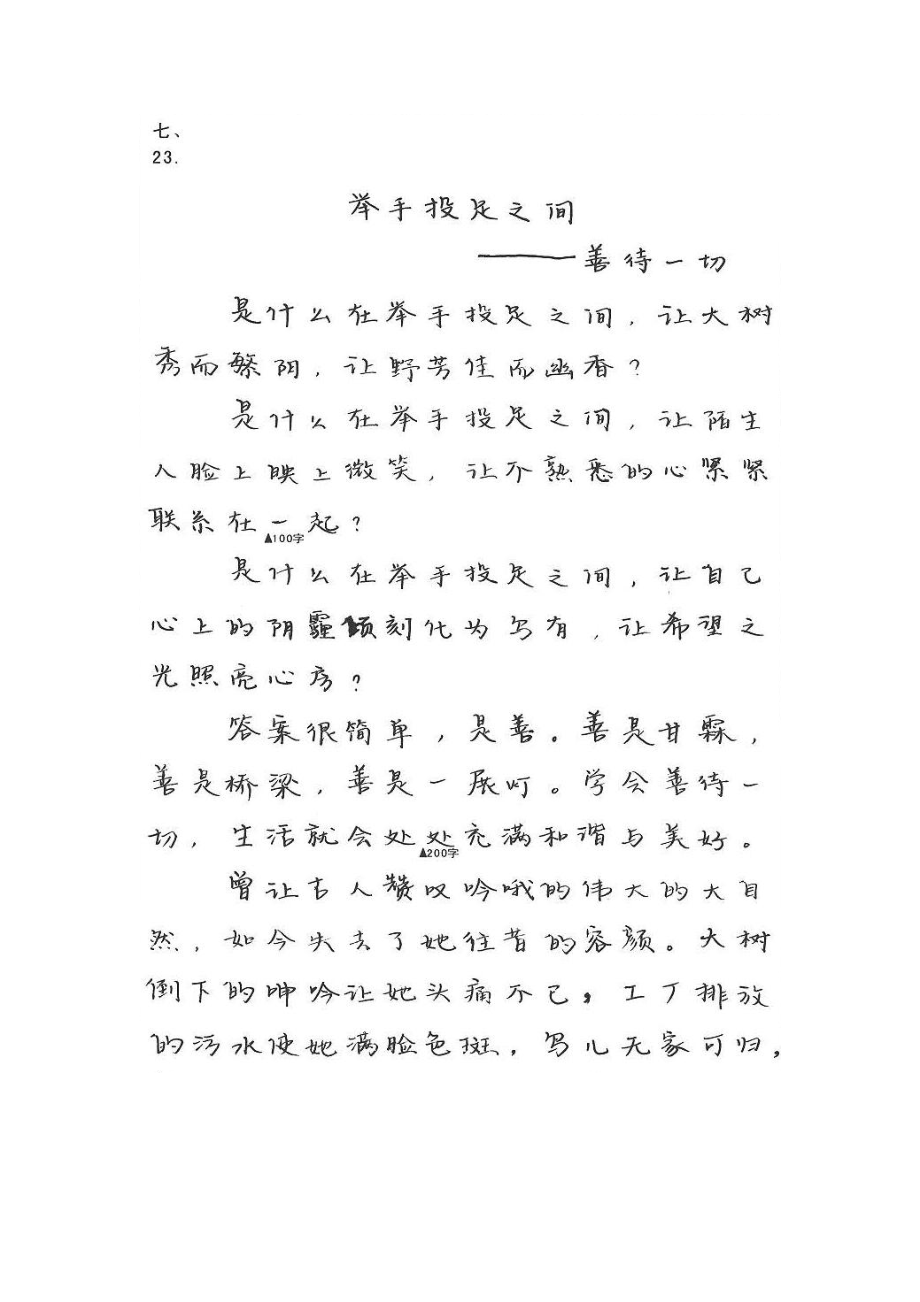 七、
23.
举手投足之间
———善待一切
是什么在举手投足之间，让大树
秀而繁阴，让野芳佳而幽香？
是什么在举手投足之间，让陌生
人脸上映上微笑，让不熟悉的心紧紧
联系在一起？
▲100字
是什么在举手投足之间，让自己
心上的阴霾顷刻化为乌有，让希望之
光照亮心房？
答案很简单，是善。善是甘霖，
善是桥梁，善是一展灯。学会善待一
切，生活就会处处充满和谐与美好。
▲200字
曾让古人赞叹吟哦的伟大的大自
然，如今失去了她往昔的容颜。大树
倒下的呻吟让她头痛不已，工厂排放
的污水使她满脸色斑，鸟儿无家可归，